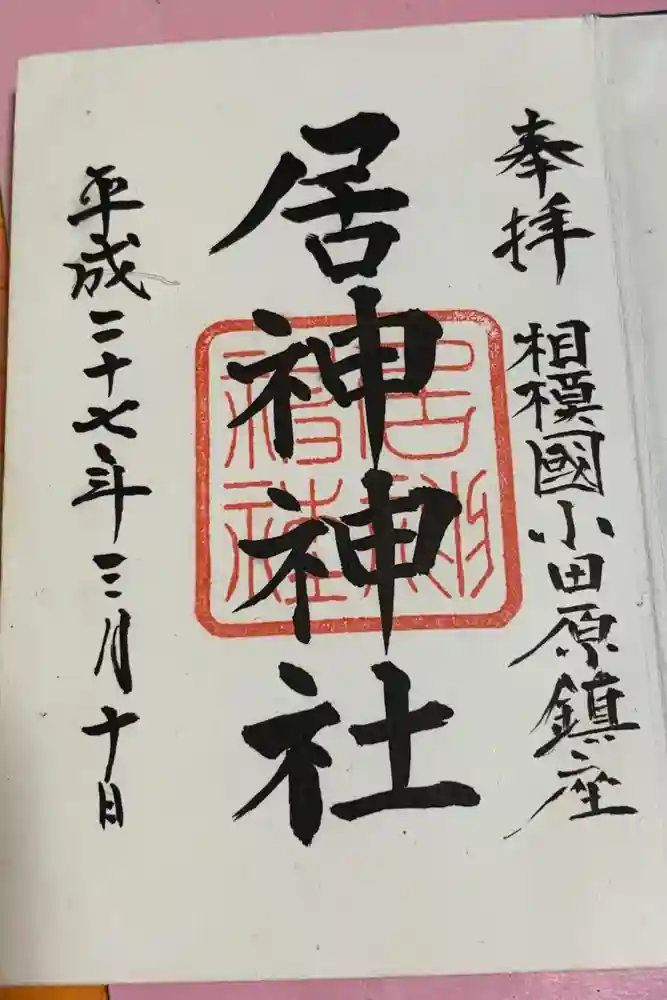 奉拝
相模國小田原鎮座
居神神社
居神
神社
平成二十七年三月十日